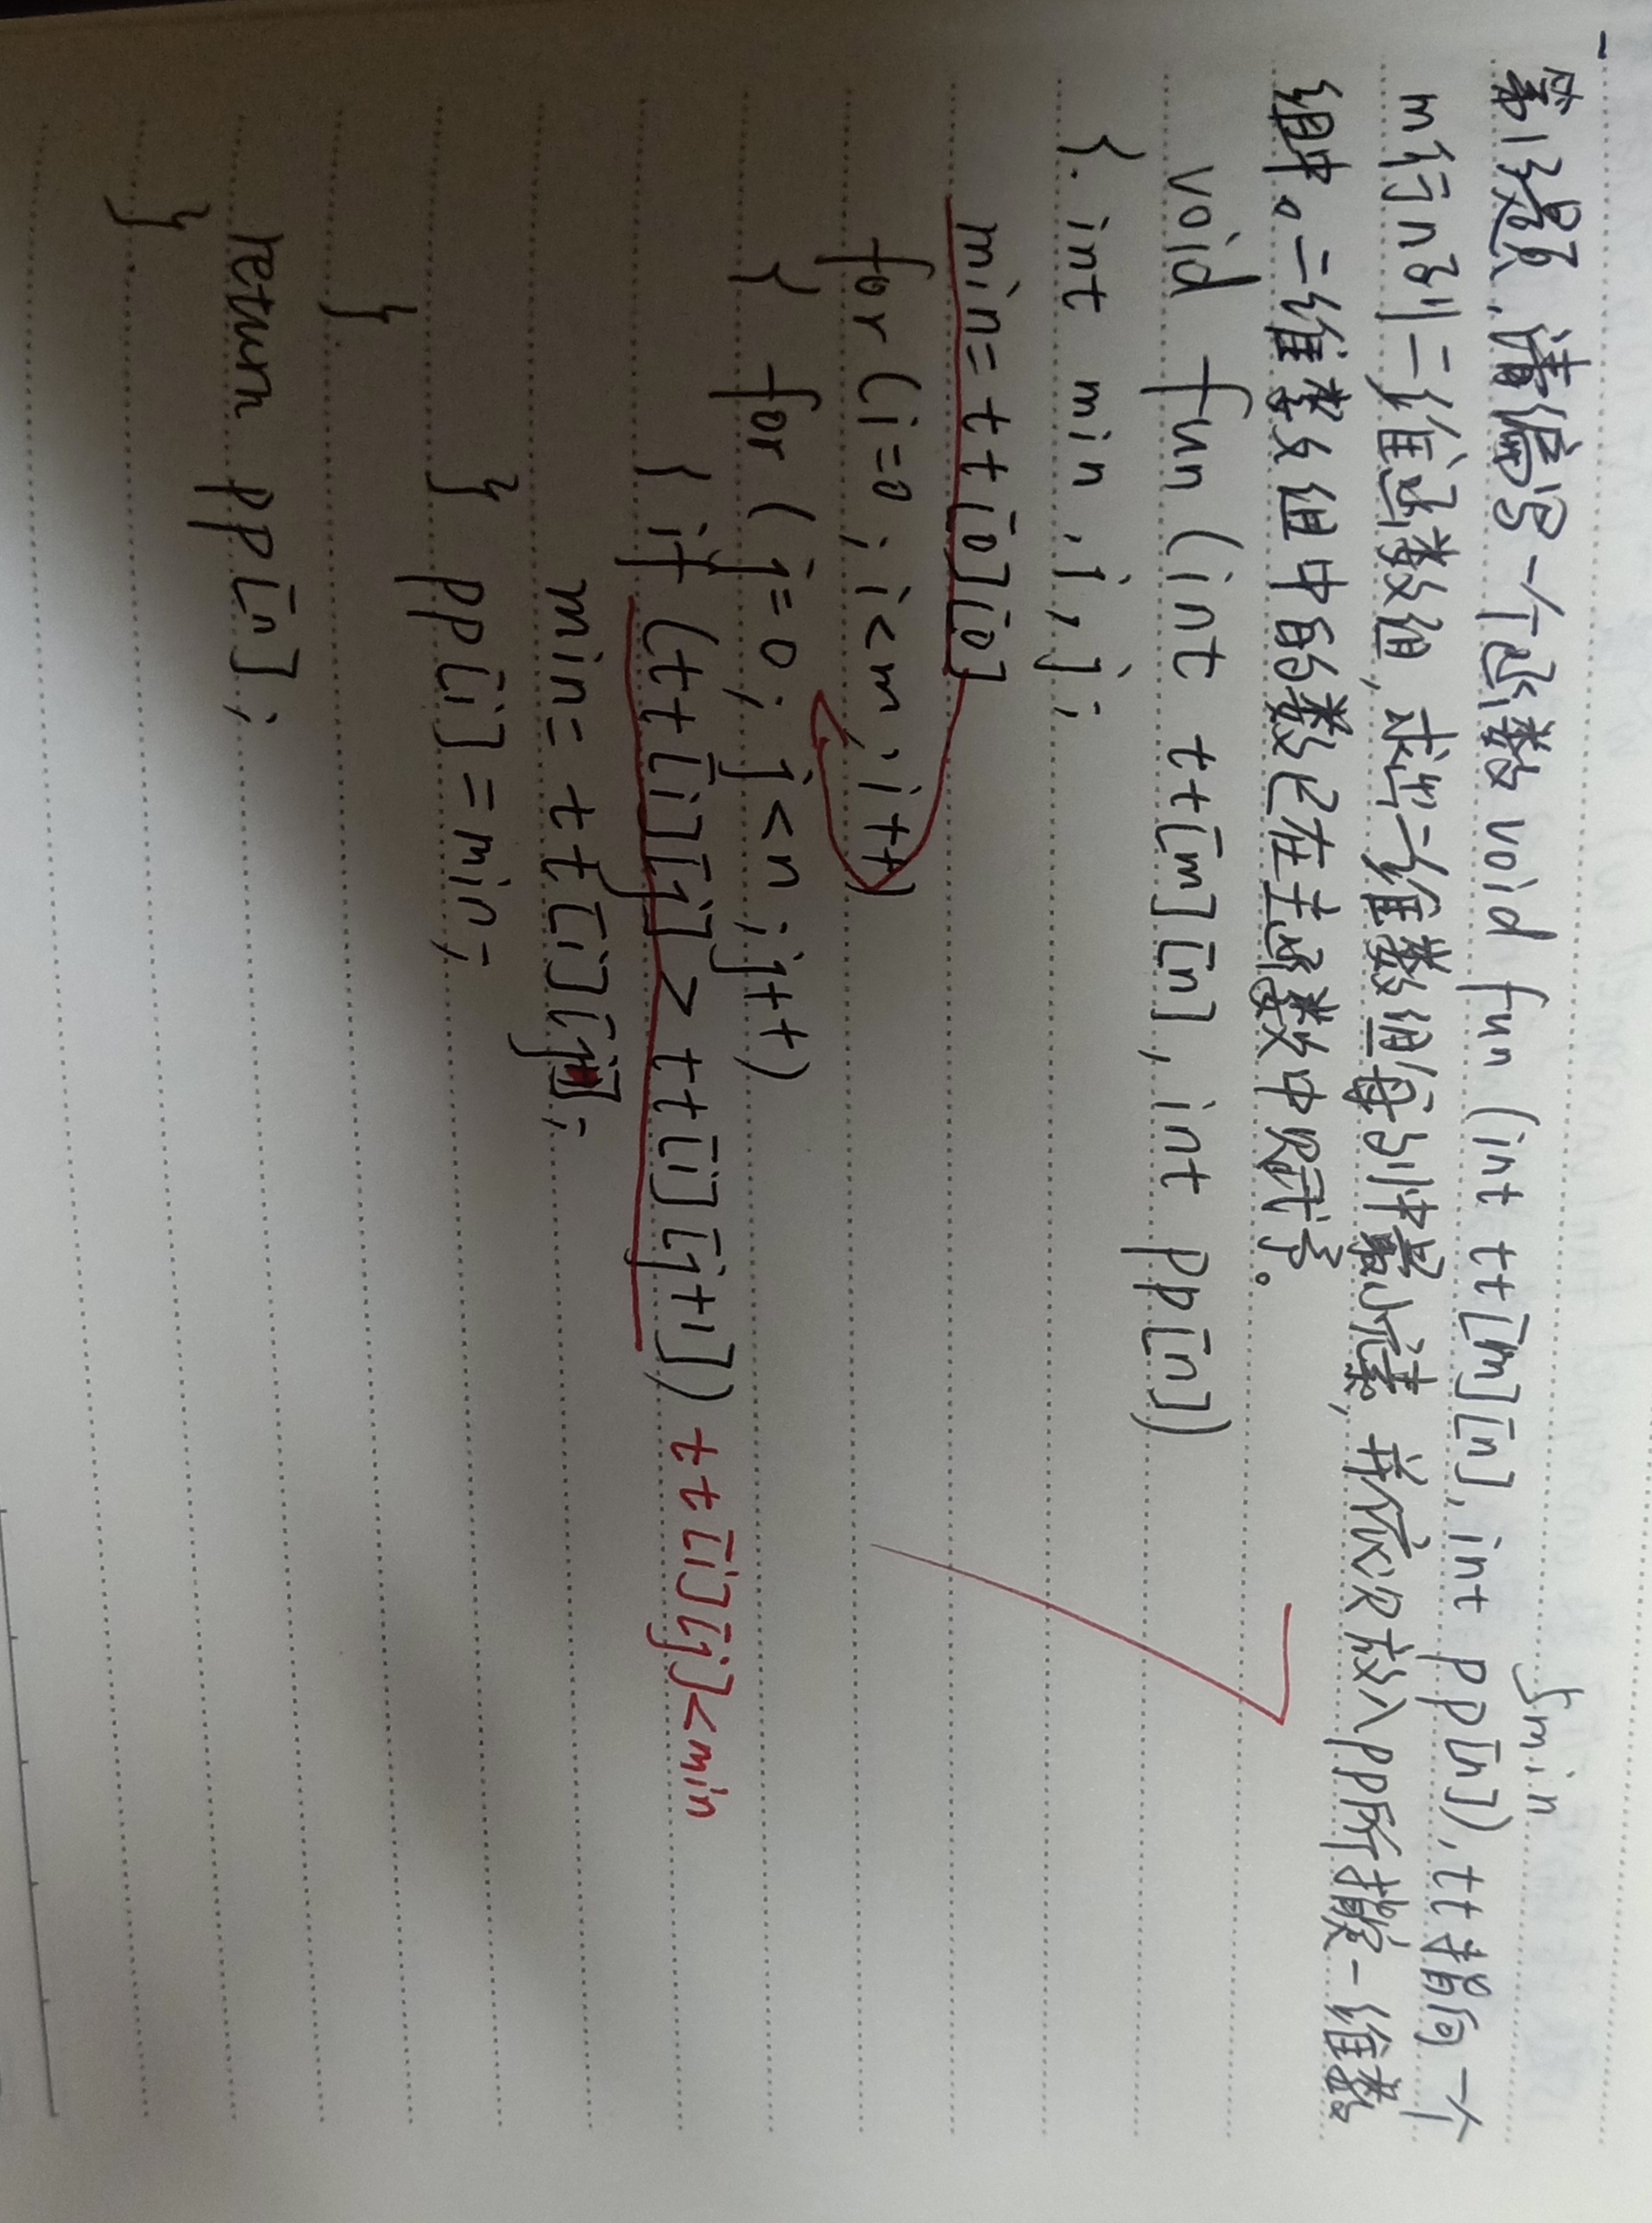 第1题.请编写一个函数 void fun (int tt[m][n], int pp[n]), tt指向一个
m行n列二维函数组,求出二维数组每列中最小元素,并依次放入pp所指定一维数
组中。二维数组中的数已在主函数中赋予。
}min
void fun (int tt[m][n], int pp[n])
{. int min , i, j;
min= tt[0][0]
for (i=0; i<m; i++)
{ for (j=0; j<n; j++)
{ if (tt[i][j]>tt[i][j+1]) tt[i][j]<min
min= tt[i][j];
} pp[i]=min;
}
return pp[n];
}